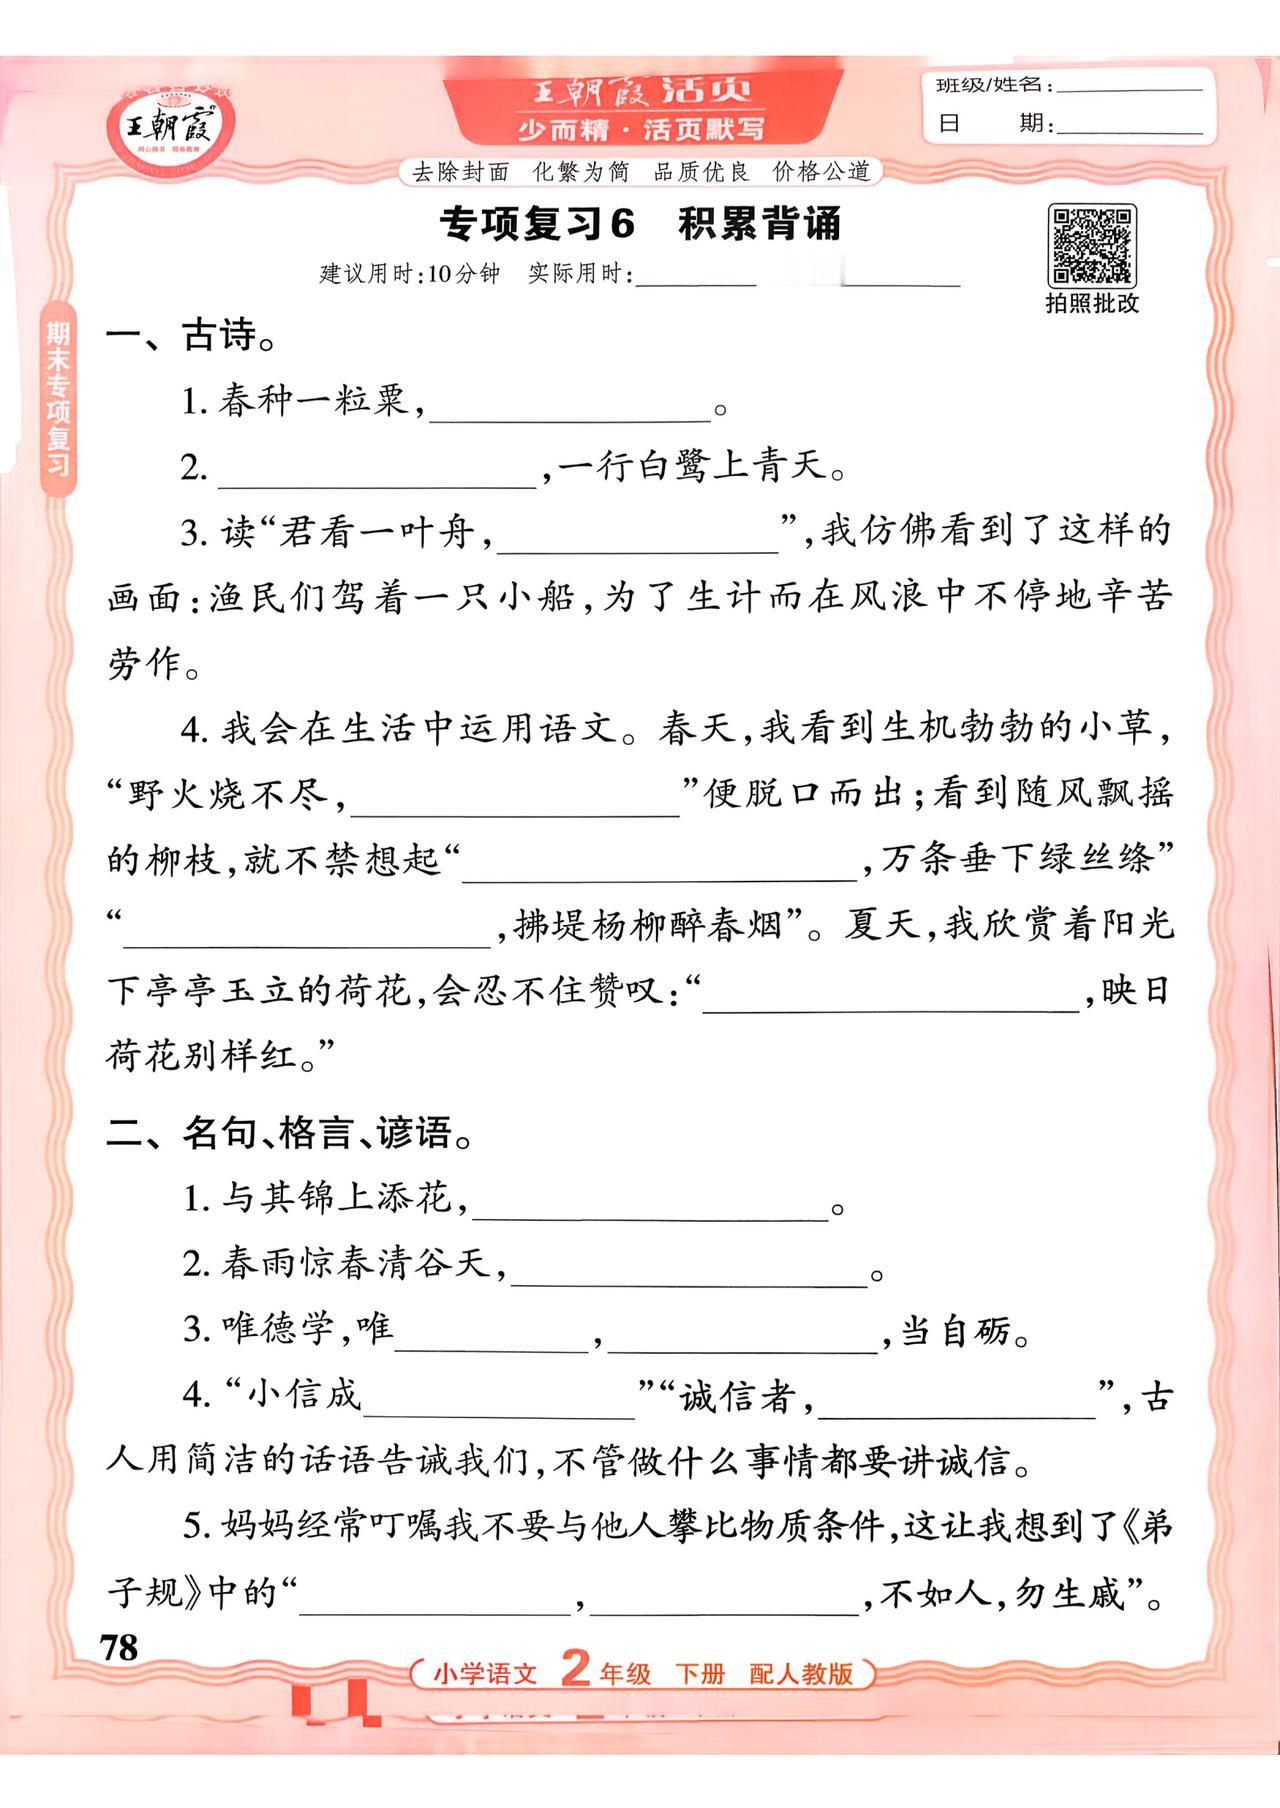 王朝霞
用心做书 服务教育
王朝霞活页
少而精·活页默写
班级/姓名:
日 期:
去除封面 化繁为简 品质优良 价格公道
专项复习6 积累背诵
建议用时:10分钟 实际用时:
拍照批改
期末专项复习
一、古诗。
1. 春种一粒粟,____。
2. ____,一行白鹭上青天。
3. 读“君看一叶舟,____”,我仿佛看到了这样的
画面:渔民们驾着一只小船,为了生计而在风浪中不停地辛苦
劳作。
4. 我会在生活中运用语文。春天,我看到生机勃勃的小草,
“野火烧不尽,____”便脱口而出;看到随风飘摇
的柳枝,就不禁想起“____,万条垂下绿丝绦”
“____,拂堤杨柳醉春烟”。夏天,我欣赏着阳光
下亭亭玉立的荷花,会忍不住赞叹:“____,映日
荷花别样红。”
二、名句、格言、谚语。
1. 与其锦上添花,____。
2. 春雨惊春清谷天,____。
3. 唯德学,唯____,____,当自砺。
4. “小信成____”“诚信者,____”,古
人用简洁的话语告诫我们,不管做什么事情都要讲诚信。
5. 妈妈经常叮嘱我不要与他人攀比物质条件,这让我想到了《弟
子规》中的“____,____,不如人,勿生戚”。
78
小学语文 2年级 下册 配人教版